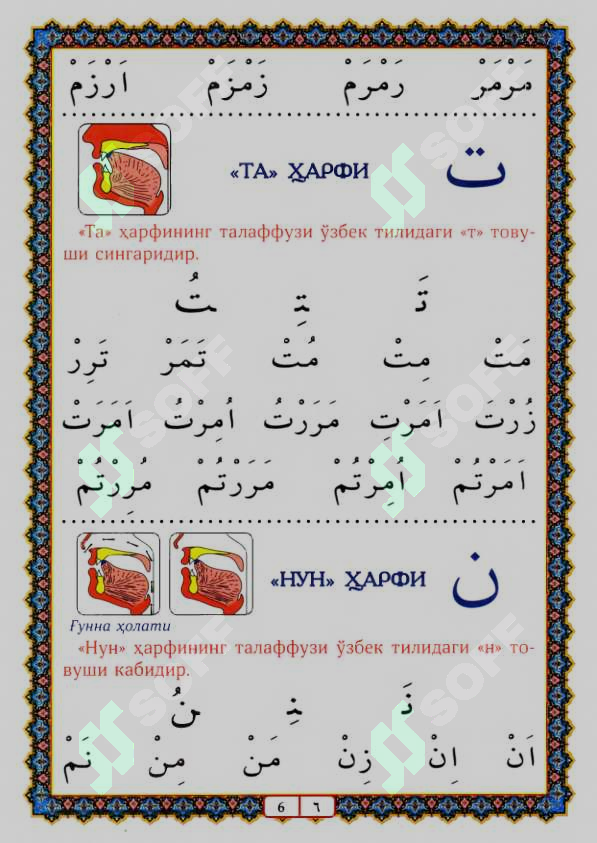 مَرْمَرْ رَمْرَمْ زَمْزَمْ اَرْزَمْ
«ТА» ҲАРФИ ت
«Та» ҳарфининг талаффузи ўзбек тилидаги «т» тову-
ши сингаридир.
تَ تِ تُ
مَتْ مِتْ مُتْ تَمَرْ تَرِرْ
زُرْتَ اَمَرْتِ مَرَرْتُ اُمِرْتُ اَمَرَتْ
اَمَرْتُمْ اُمِرْتُمْ مَرَرْتُمْ مُرِرْتُمْ
«НУН» ҲАРФИ ن
Ғунна ҳолати
«Нун» ҳарфининг талаффузи ўзбек тилидаги «н» то-
вуши кабидир.
نَ نِ نُ
اَنْ اِنْ زِنْ مَنْ مِنْ نَمْ
6 ٦
SOFF
SOFF
SOFF
SOFF
SOFF
SOFF